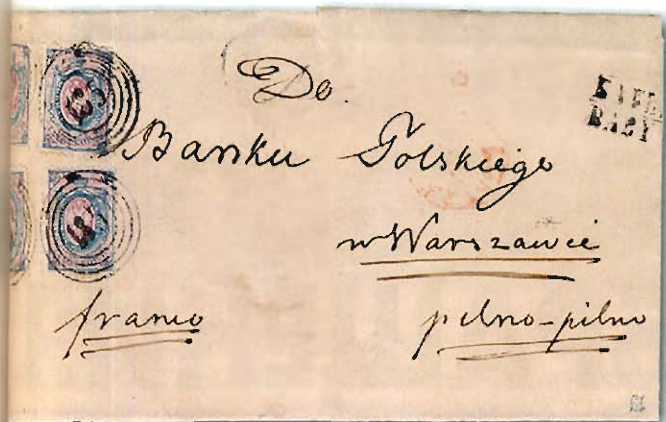 Do.
Banku Polskiego
w Warszawie
franco
pilno-pilno